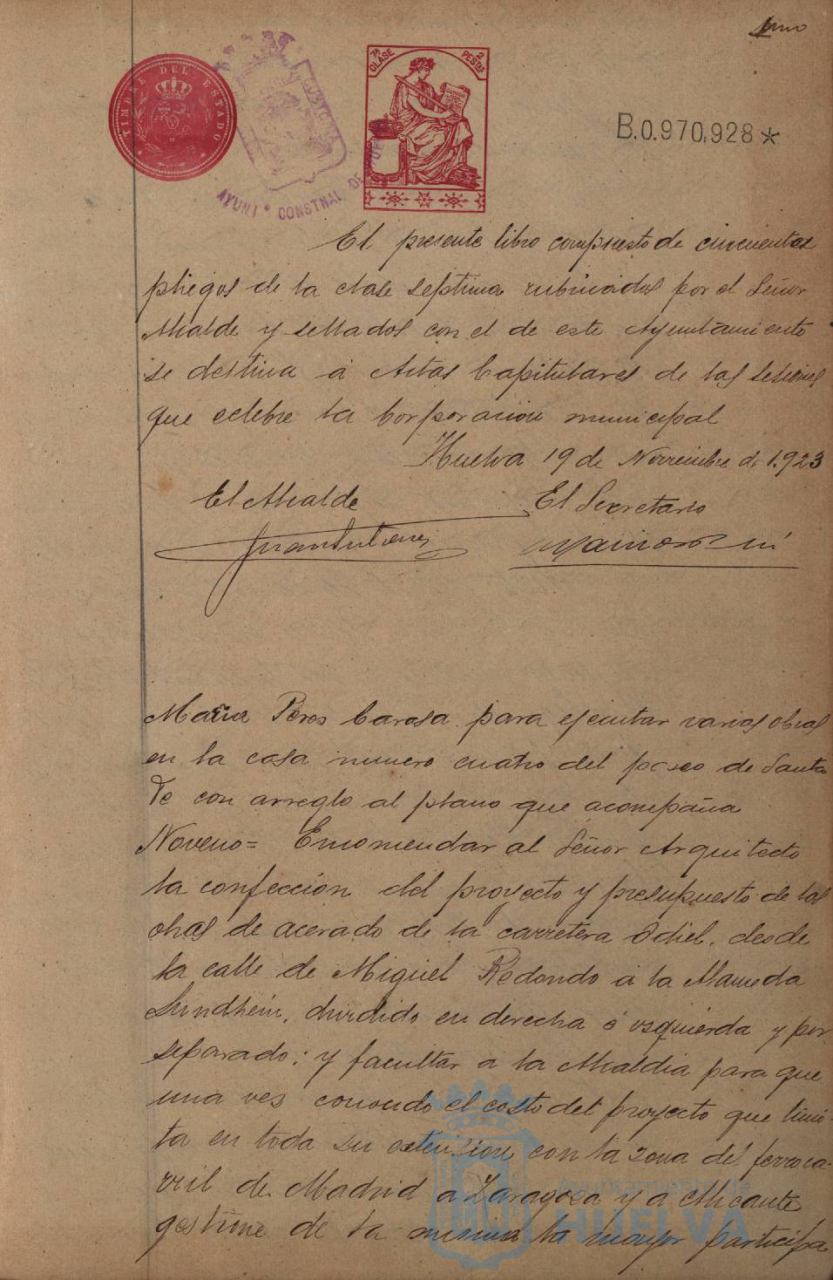 uno
TIMBRE DEL ESTADO
7ª CLASE
2 PESTAS
AYUNT° CONSTNAL DE HUE
B.0.970.928*
El presente libro compuesto de cincuenta
pliegos de la clase septima rubricados por el Señor
Alcalde y sellados con el de este Ayuntamiento
se destina á Actas Capitulares de las sesiones
que celebre la Corporación municipal
Huelva 19 de Noviembre de 1.923
El Alcalde
El Secretario
Maria Peres Carasa para ejecutar varias obras
en la casa numero cuatro del paseo de Santa
Fe con arreglo al plano que acompaña
Noveno= Encomendar al Señor Arquitecto
la confección del proyecto y presupuesto de las
obras de acerado de la carretera Odiel, desde
la calle de Miguel Redondo á la Alameda
Sundhein, dividido en derecha é izquierda y por
separado; y facultar a la Alcaldia para que
una ves conocido el costo del proyecto que limi-
ta en toda su estension con la zona del ferroca-
rril de Madrid a Zaragosa y a Alicante
gestione de la misma la mayor participa
Ayuntamiento de
HUELVA